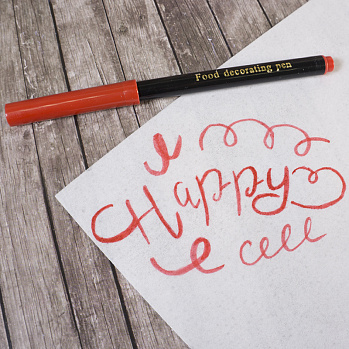 Food decorating pen
Happy